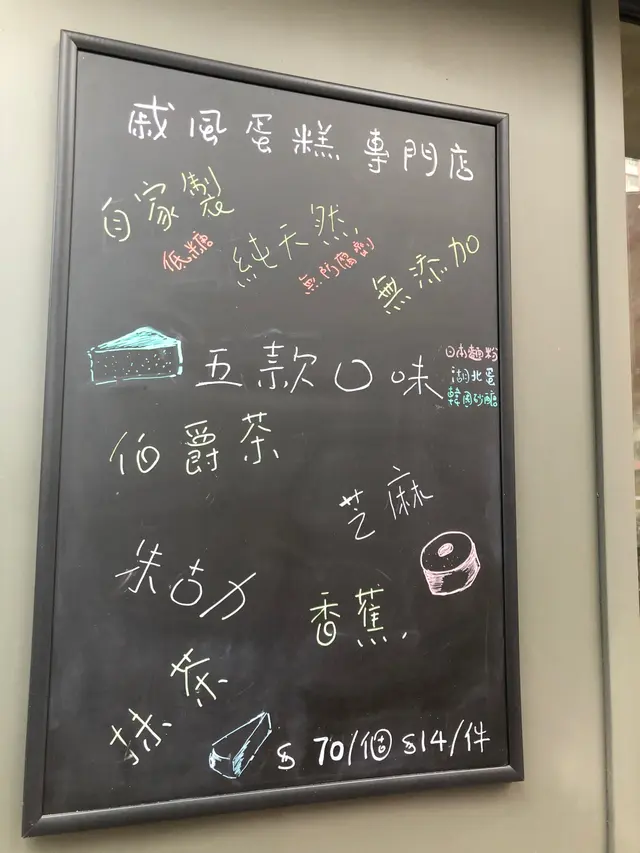 戚風蛋糕專門店
自家製
低糖
純天然
無防腐劑
無添加
五款口味
日本麵粉
湖北蛋
韓国砂糖
伯爵茶
芝麻
朱古力
香蕉
抹茶
$ 70/個 $14/件